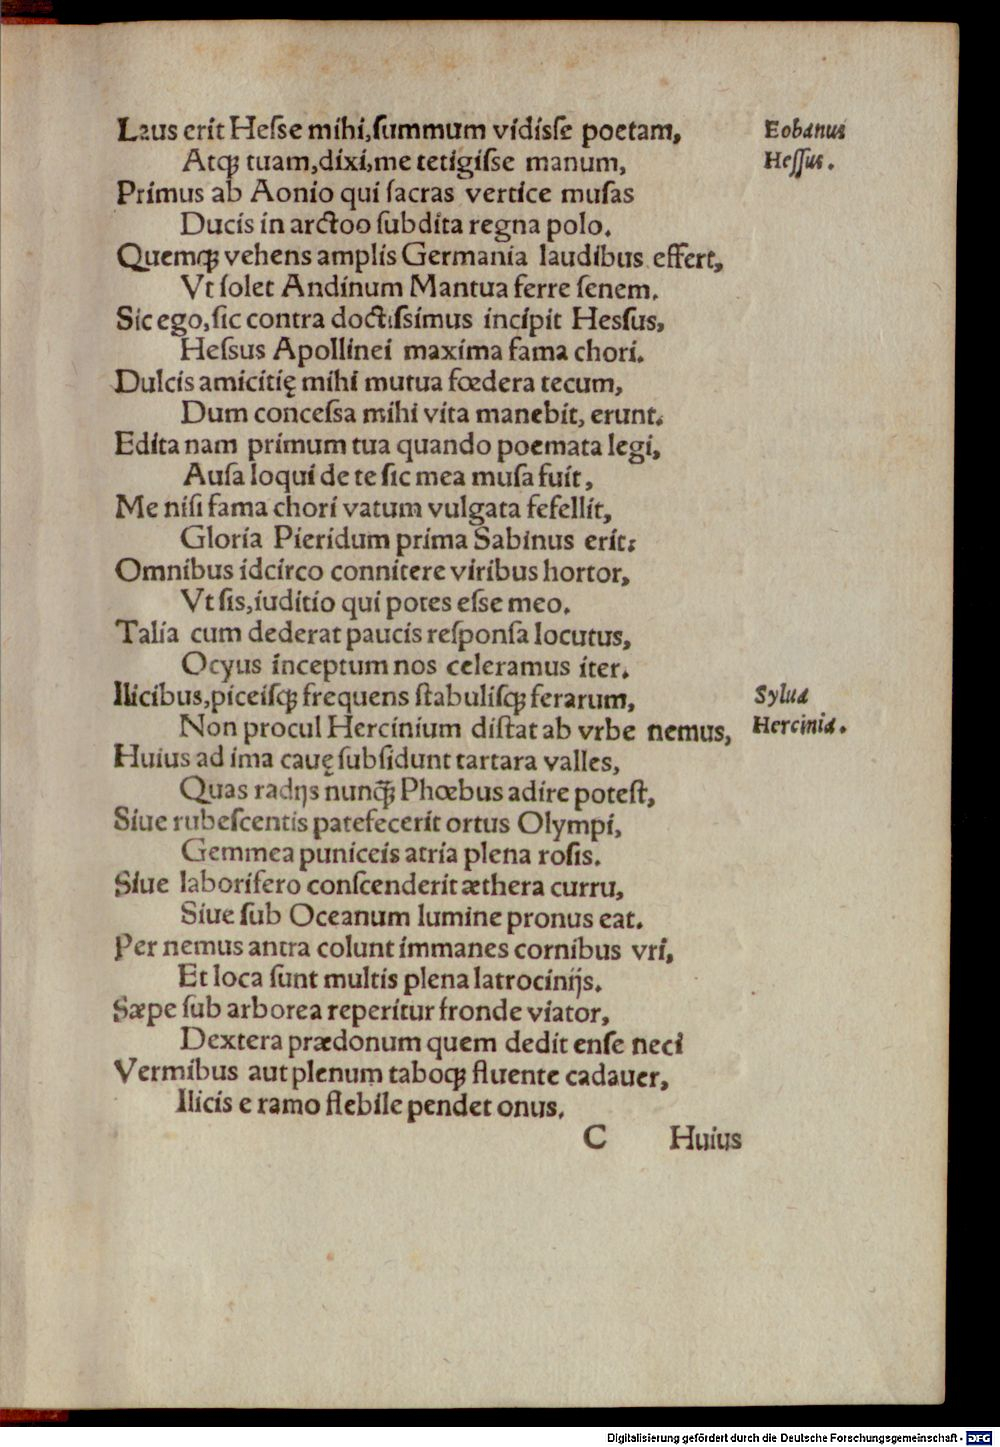 Laus erit Heſse mihi,ſummum vidiſse poetam,
Eobanus
Atqꝫ tuam,dixi,me tetigiſse manum,
Heſſus.
Primus ab Aonio qui ſacras vertice muſas
Ducis in arctoo ſubdita regna polo.
Quemqꝫ vehens amplis Germania laudibus effert,
Vt ſolet Andinum Mantua ferre ſenem.
Sic ego,ſic contra doctiſsimus incipit Heſsus,
Heſsus Apollinei maxima fama chori.
Dulcis amicitię mihi mutua fœdera tecum,
Dum conceſsa mihi vita manebit, erunt.
Edita nam primum tua quando poemata legi,
Auſa loqui de te ſic mea muſa fuit,
Me niſi fama chori vatum vulgata fefellit,
Gloria Pieridum prima Sabinus erit:
Omnibus idcirco connitere viribus hortor,
Vt ſis,iuditio qui potes eſse meo.
Talia cum dederat paucis reſponſa locutus,
Ocyus inceptum nos celeramus iter.
Ilicibus,piceiſqꝫ frequens ſtabuliſqꝫ ferarum,
Sylua
Non procul Hercinium diſtat ab vrbe nemus,
Hercinia.
Huius ad ima cauę ſubſidunt tartara valles,
Quas radijs nunq̃ꝫ Phœbus adire poteſt,
Siue rubeſcentis patefecerit ortus Olympi,
Gemmea puniceis atria plena roſis.
Siue laborifero conſcenderit æthera curru,
Siue ſub Oceanum lumine pronus eat.
Per nemus antra colunt immanes cornibus vri,
Et loca ſunt multis plena latrocinijs.
Sæpe ſub arborea reperitur fronde viator,
Dextera prædonum quem dedit enſe neci
Vermibus aut plenum taboqꝫ fluente cadauer,
Ilicis e ramo flebile pendet onus.
C Huius
Digitalisierung gefördert durch die Deutsche Forschungsgemeinschaft - DFG